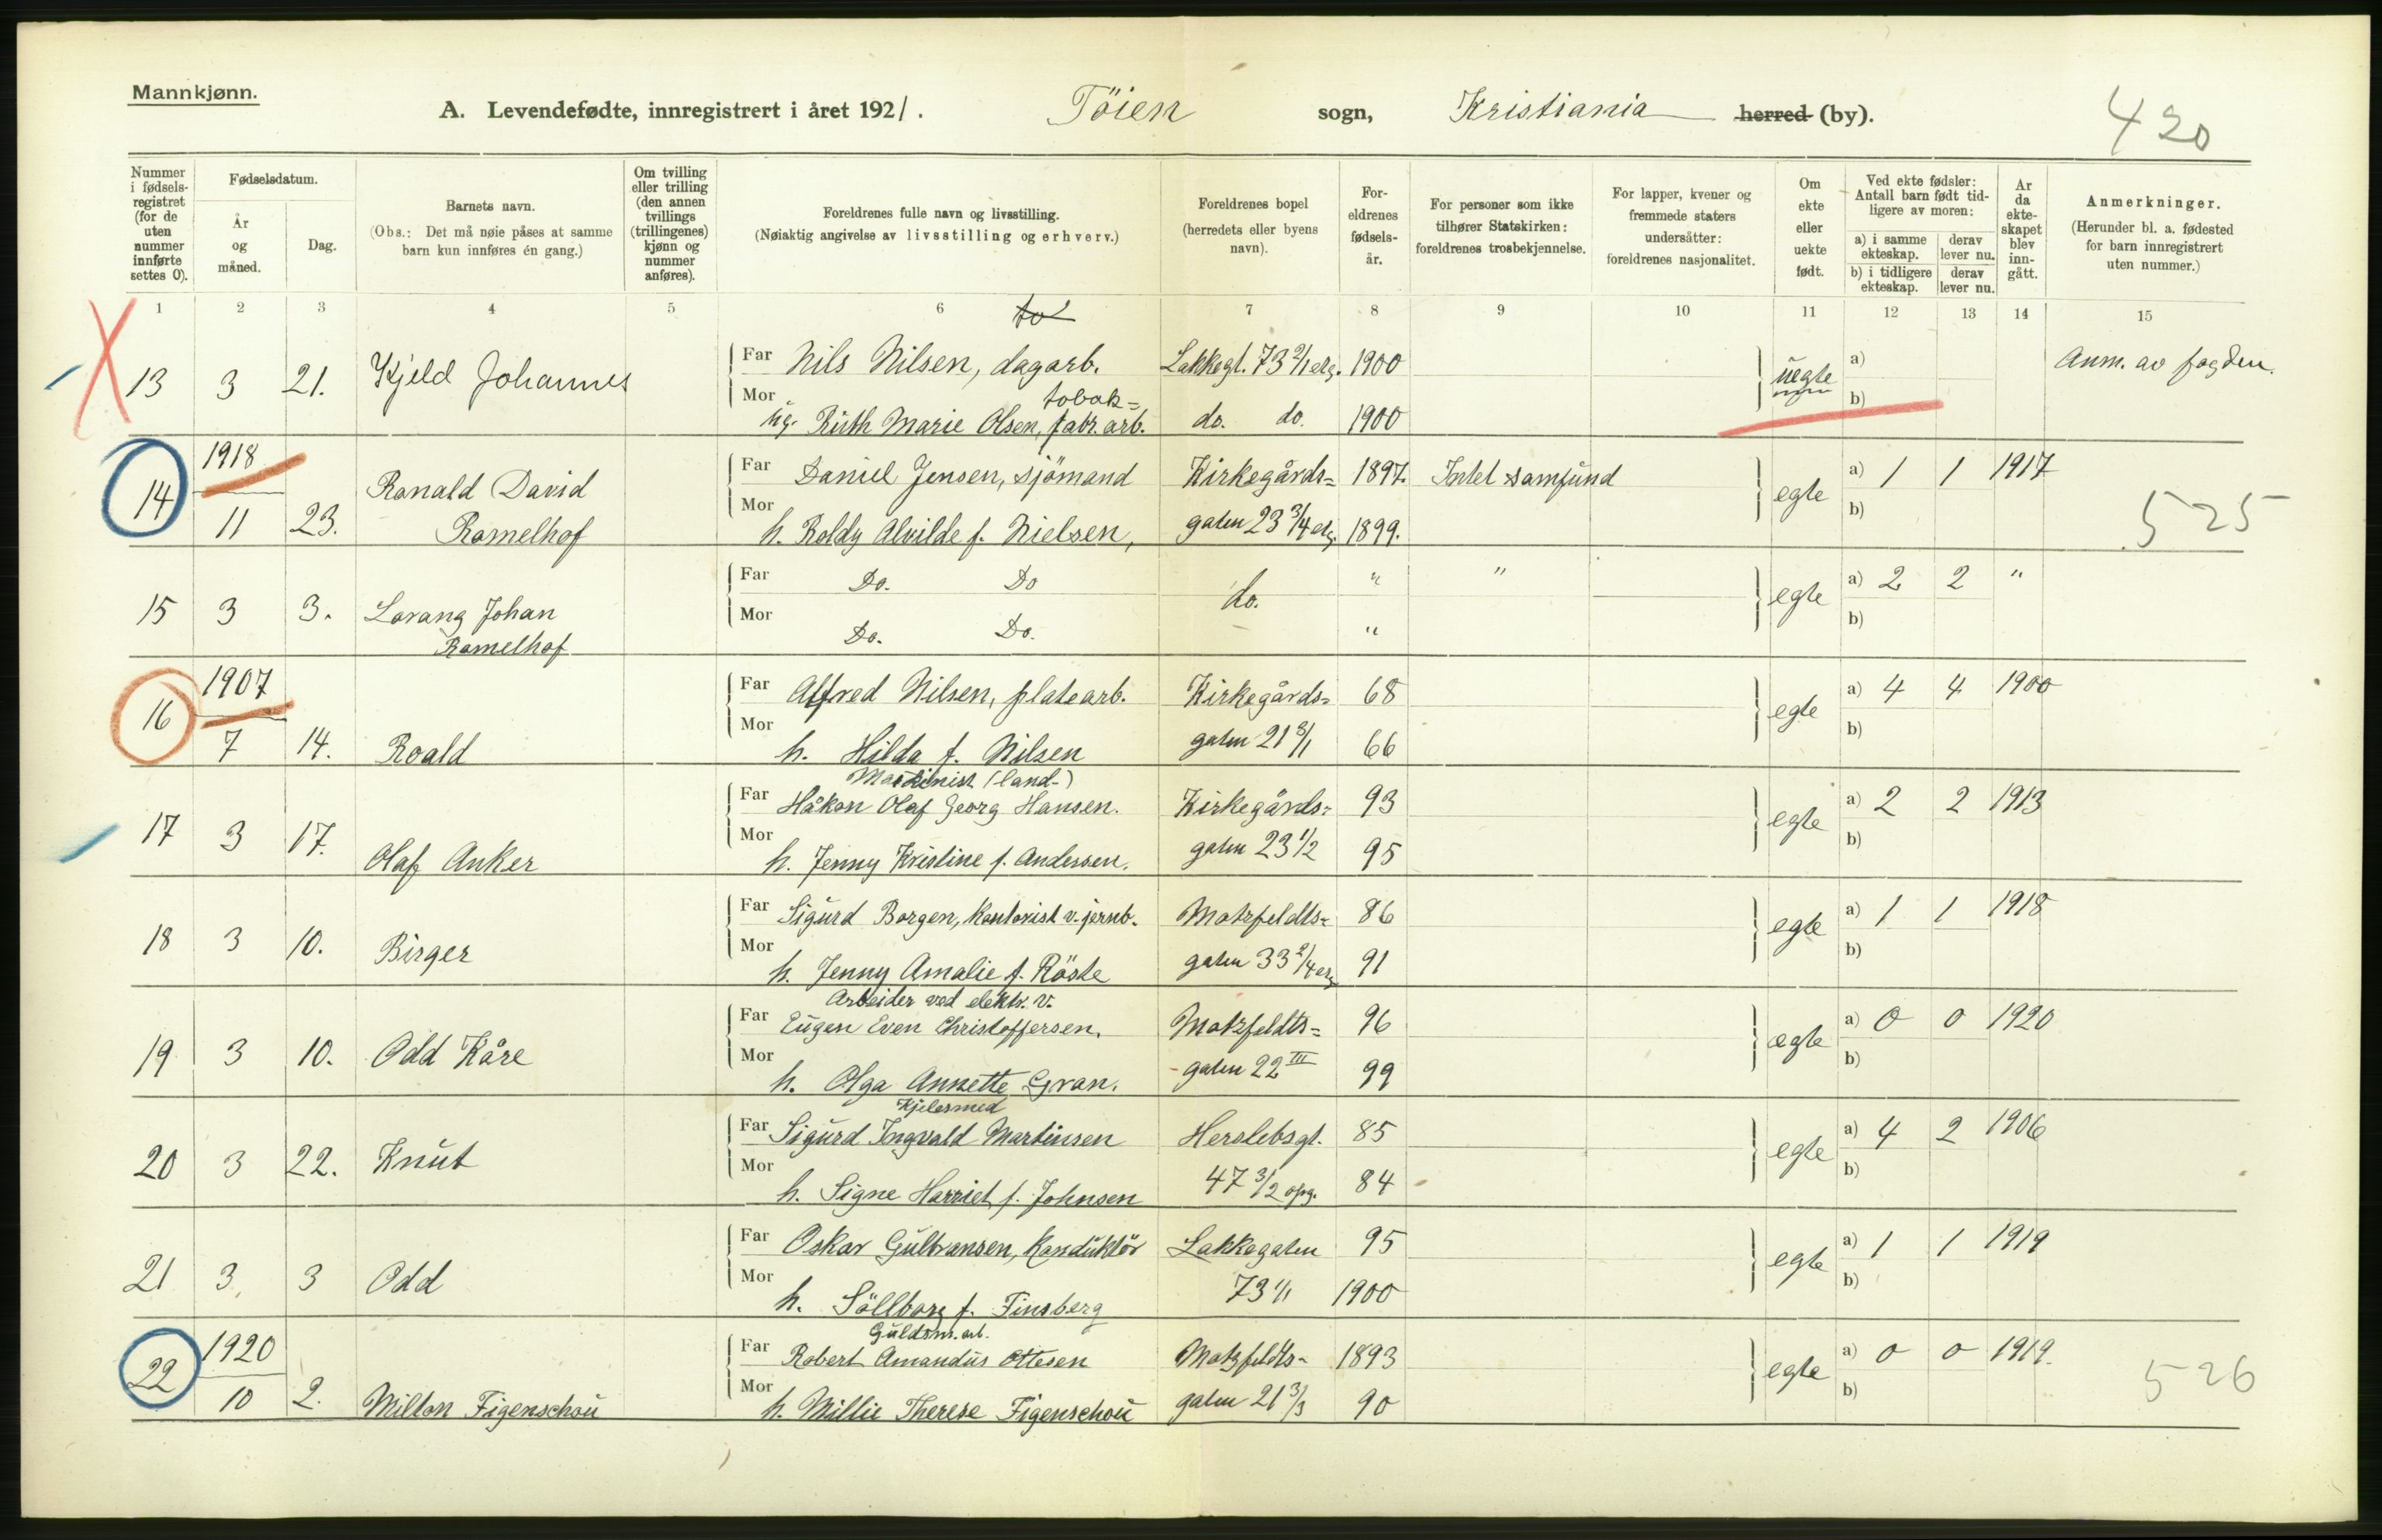 Mannkjønn.
A. Levendefødte, innregistrert i året 1921. Töien sogn, Kristiania herred (by).
420
Nummer i fødselsregistret (for de uten nummer innførte settes 0).
Fødselsdatum.
År og måned.
Dag.
Barnets navn.
(Obs.: Det må nøie påses at samme barn kun innføres én gang.)
Om tvilling eller trilling (den annen tvillings (trillingenes) kjønn og nummer anføres).
Foreldrenes fulle navn og livsstilling.
(Nøiaktig angivelse av livsstilling og erhverv.)
Foreldrenes bopel (herredets eller byens navn).
Foreldrenes fødselsår.
For personer som ikke tilhører Statskirken: foreldrenes trosbekjennelse.
For lapper, kvener og fremmede staters undersåtter: foreldrenes nasjonalitet.
Om ekte eller uekte født.
Ved ekte fødsler: Antall barn født tidligere av moren:
a) i samme ekteskap. derav lever nu.
b) i tidligere ekteskap. derav lever nu.
År da ekteskapet blev inngått.
Anmerkninger.
(Herunder bl. a. fødested for barn innregistrert uten nummer.)
1 2 3 4 5 6 7 8 9 10 11 12 13 14 15
13 3 21. Kjeld Johannes
Far Nils Nilsen, dagarb. Lakkegt. 73 2/1 etg. 1900 uegte a) b)
Mor ug. Ruth Marie Olsen, tobak= fabr. arb. do. do. 1900
Anm. av fogden.
14 1918 11 23. Ronald David Romelhof
Far Daniel Jensen, sjömand Kirkegårds= 1897. Intet samfund egte a) 1 1 1917 b)
Mor h. Boldy Alvilde f. Nielsen, gaten 23 3/4 etg. 1899.
525
15 3 3. Lorang Johan Romelhof
Far Do. Do do. " " egte a) 2 2 " b)
Mor Do. Do. "
16 1907 7 14. Roald
Far Alfred Nilsen, platearb. Kirkegårds= 68 egte a) 4 4 1900 b)
Mor h. Hilda f. Nilsen gaten 21 3/1 66
17 3 17. Olaf Anker
Maskinist (land-)
Far Håkon Olaf Georg Hansen. Kirkegårds= 93 egte a) 2 2 1913 b)
Mor h. Jenny Kristine f. Andersen. gaten 23 1/2 95
18 3 10. Birger
Far Sigurd Borgen, kontorist v. jernb. Motzfeldts= 86 egte a) 1 1 1918 b)
Mor h. Jenny Amalie f. Röste gaten 33 2/4 etg 91
19 3 10. Odd Kåre
Arbeider ved elektr. v.
Far Eugen Even Christoffersen. Motzfeldts= 96 egte a) 0 0 1920 b)
Mor h. Olga Annette Gran. gaten 22 III 99
20 3 22. Knut
Kjelesmed
Far Sigurd Ingvald Martinsen Herslebsgt. 85 egte a) 4 2 1906 b)
Mor h. Signe Harriet f. Johnsen 47 3/2 opg. 84
21 3 3 Odd
Far Oskar Gulbransen, Konduktör Lakkegaten 95 egte a) 1 1 1919 b)
Mor h. Söllborg f. Finsberg 73 1/1 1900
22 1920 10 2. Milton Figenschou
Guldsm. arb.
Far Robert Amandus Ottesen Motzfeldts- 1893 egte a) 0 0 1919. b)
Mor h. Millie Therese Figenschou gaten 21 3/3 90
526